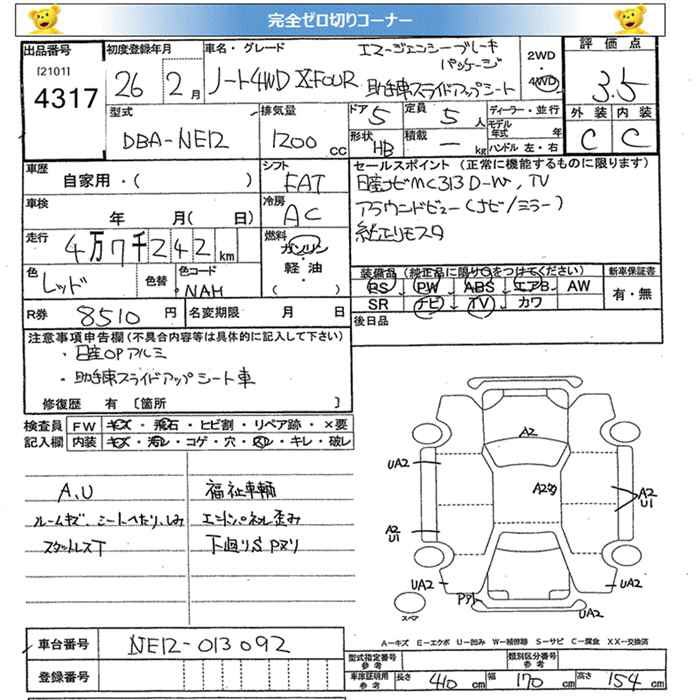 完全ゼロ切りコーナー
出品番号
[2101]
4317
初度登録年月
26 年 2 月
車名・グレード
エマージェンシーブレーキ
パッケージ
ノート4WD X-FOUR 助手席スライドアップシート
2WD
・
4WD
評価点
3.5
外装 内装
C C
型式
DBA-NE12
排気量
1200 cc
ドア 5
定員 5 人
形状 HB
積載 ー kg
ディーラー・並行
モデル年式 年
ハンドル 左・右
車歴
自家用・( )
シフト
FAT
車検
年 月( 日)
冷房
AC
走行
4万7千242 km
燃料
ガソリン
軽・油
( )
色
レッド
色替
色コード
NAH
R券 8510 円
名変期限 月 日
セールスポイント (正常に機能するものに限ります)
日産ナビMC313D-W, TV
アラウンドビュー(ナビ/ミラー)
純正リモスタ
装備品(純正品に限り○をつけてください)
PS PW ABS エアB AW
SR ナビ TV カワ
新車保証書
有・無
後日品
注意事項申告欄(不具合内容等は具体的に記入して下さい)
・日産OPアルミ
・助手席スライドアップシート車
修復歴 有 〔箇所 〕
検査員
記入欄
FW キズ・飛石・ヒビ割・リペア跡・×要
内装 キズ・汚れ・コゲ・穴・スレ・キレ・破レ
A,U
ルームキズ、シートへたり、しみ
スタットレスT
福祉車輌
エンドパネル歪み
下回りS Pヌリ
A2
UA2
A2
A2
U1
A2
U1
UA2
UA2
UA2
スペア
A－キズ E－エクボ U－凹み W－補修跡 S－サビ C－腐食 XX－交換済
車台番号 NE12-013092
登録番号
型式指定番号
参考
類別区分番号
参考
車庫証明用
参考
長さ 410 cm
幅 170 cm
高さ 154 cm